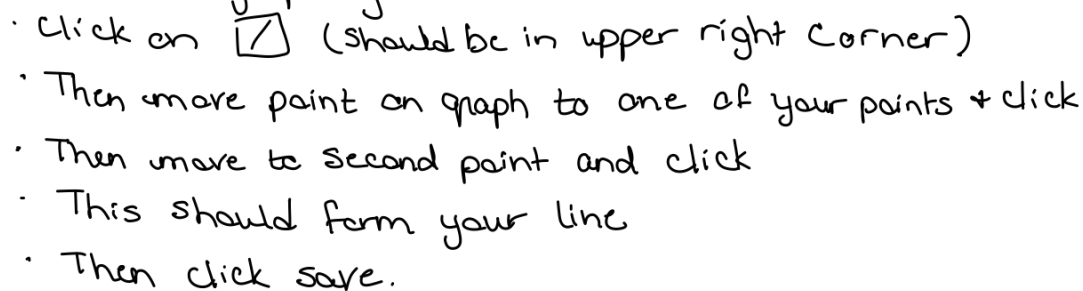 · Click on (should be in upper right corner)
· Then move point on graph to one of your points + click
· Then move to second point and click
· This should form your line
· Then click save.